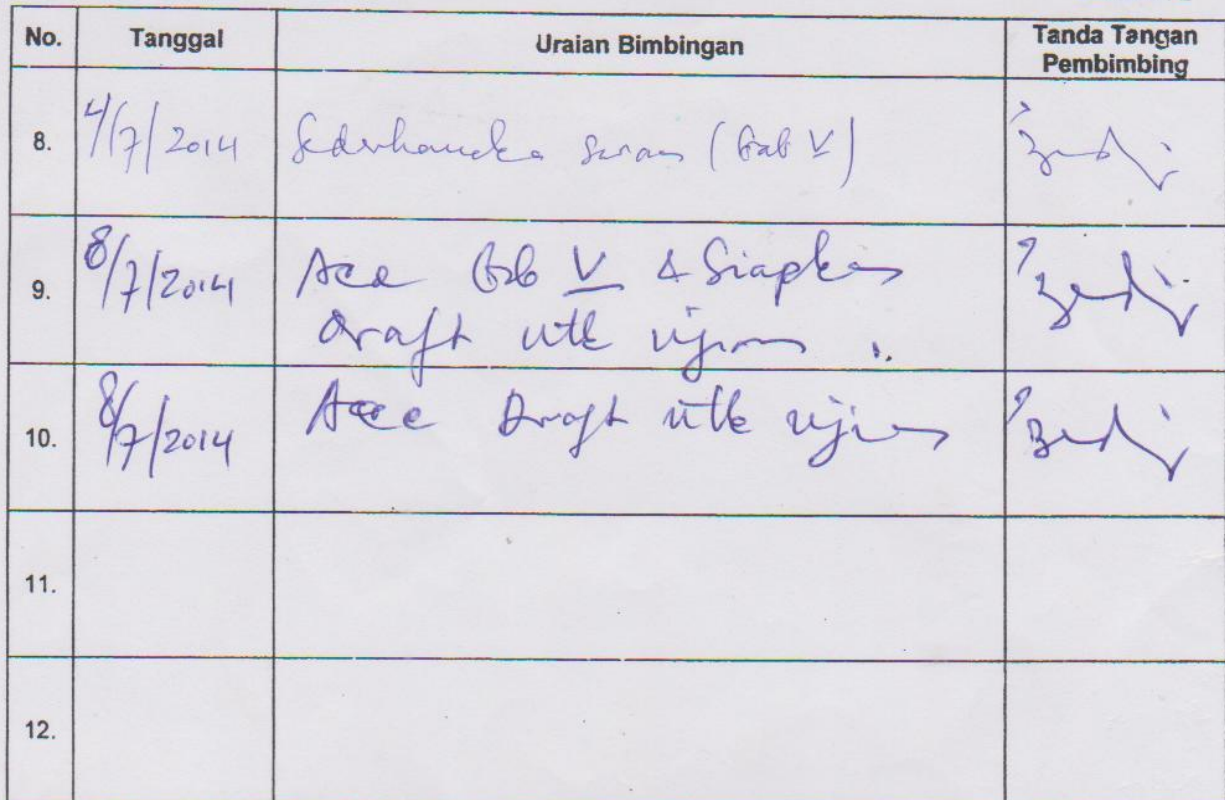 No. Tanggal Uraian Bimbingan Tanda Tangan
Pembimbing
8. 4/7/2014 Sederhanaka saran (Bab V)
9. 8/7/2014 Acc Bab V & Siapkan
draft utk ujian
10. 8/7/2014 Acc Draft utk ujian
11.
12.